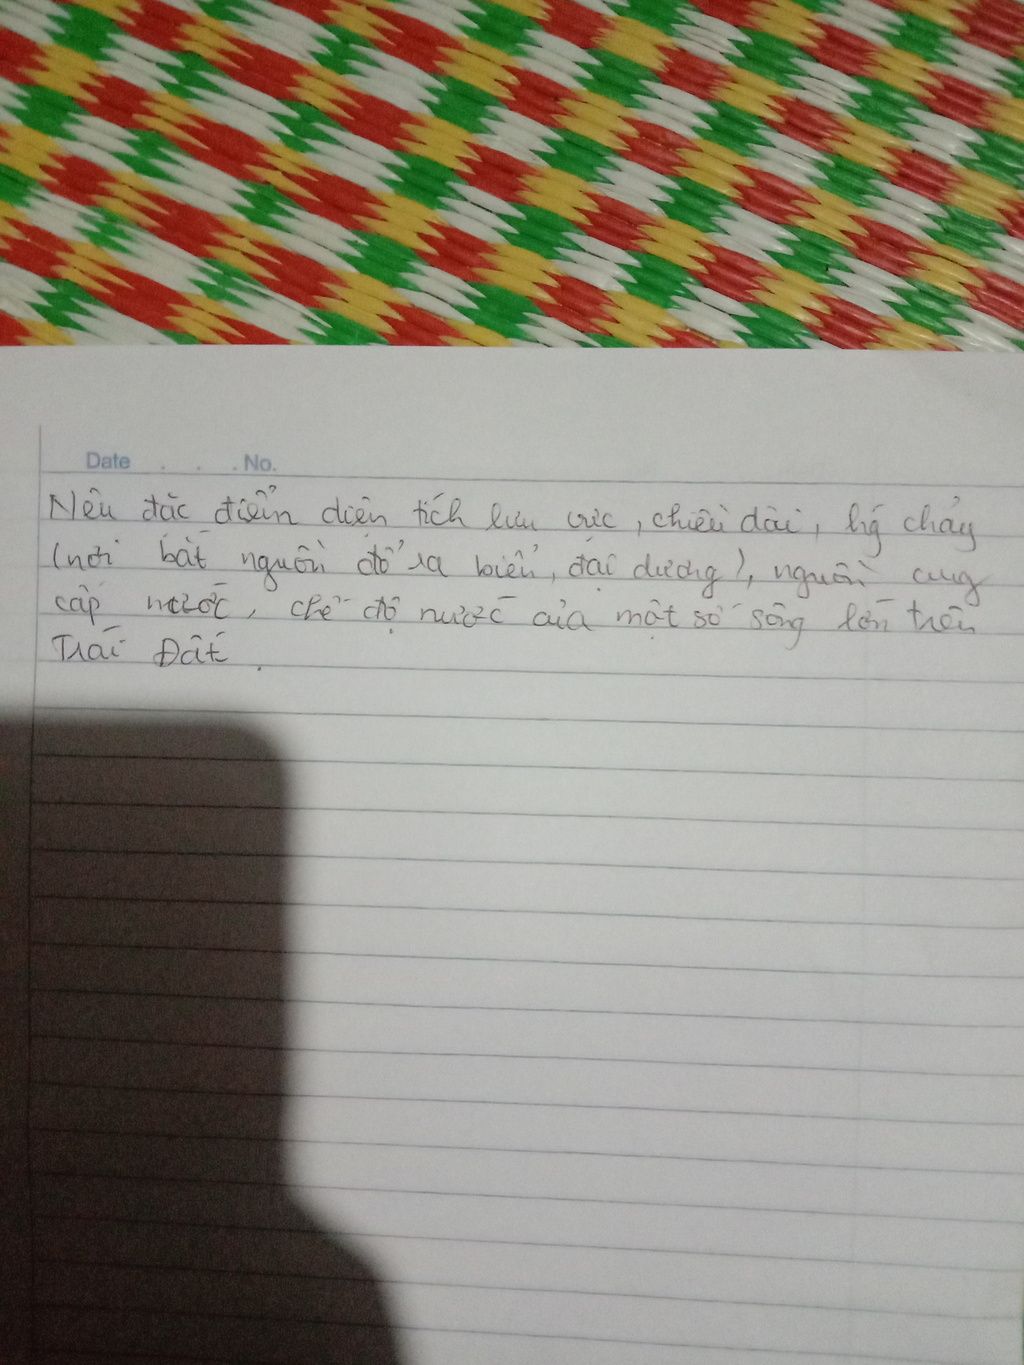 Date . . . No.
Nêu đặc điểm diện tích lưu vực, chiều dài, hg chảy
(nơi bắt nguồn đổ ra biển, đại dương), nguồn cung
cấp nước, chế độ nước của một số sông lớn trên
Trái Đất.